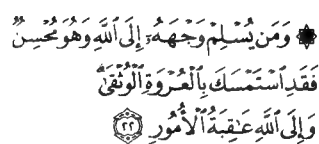 ۞ وَمَن يُسْلِمْ وَجْهَهُۥٓ إِلَى ٱللَّهِ وَهُوَ مُحْسِنٌ
فَقَدِ ٱسْتَمْسَكَ بِٱلْعُرْوَةِ ٱلْوُثْقَىٰۗ
وَإِلَى ٱللَّهِ عَٰقِبَةُ ٱلْأُمُورِ ٢٢